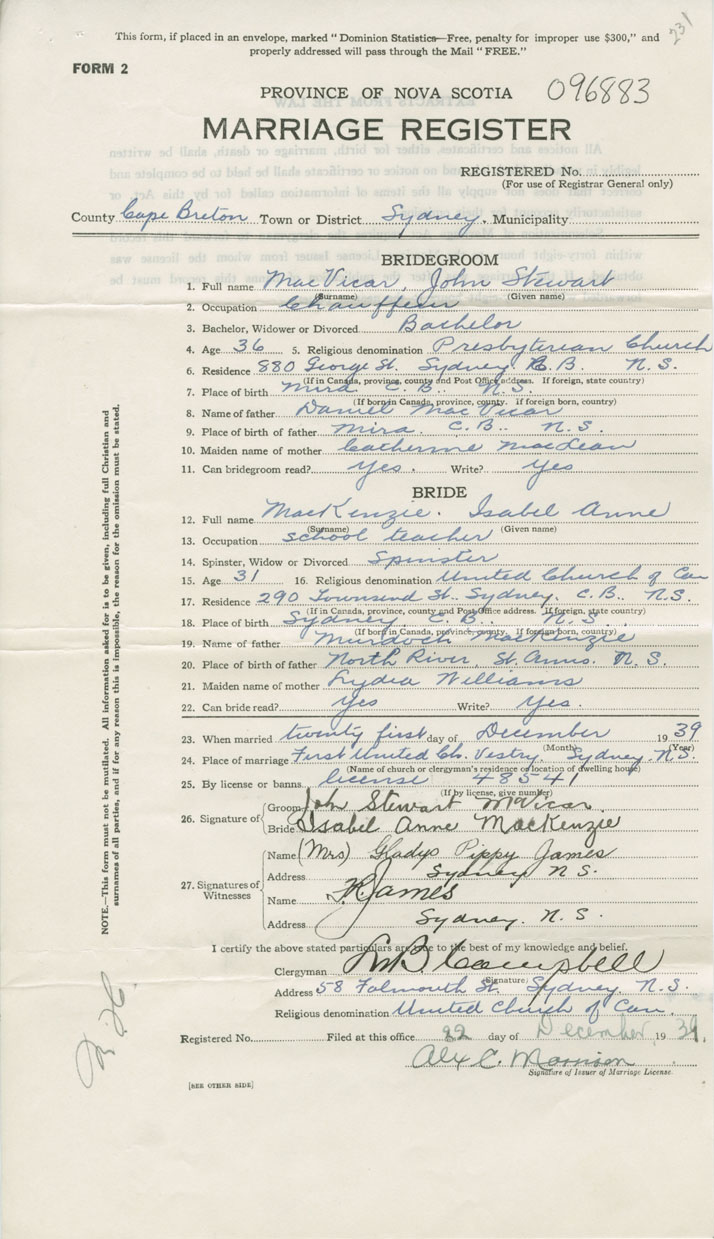 231
This form, if placed in an envelope, marked "Dominion Statistics—Free, penalty for improper use $300," and
properly addressed will pass through the Mail "FREE."
FORM 2
PROVINCE OF NOVA SCOTIA 096883
MARRIAGE REGISTER
REGISTERED No.
(For use of Registrar General only)
County Cape Breton Town or District Sydney. Municipality
BRIDEGROOM
1. Full name MacVicar, John Stewart
(Surname) (Given name)
2. Occupation Chauffeur
3. Bachelor, Widower or Divorced Bachelor
4. Age 36 5. Religious denomination Presbyterian Church
6. Residence 880 George St. Sydney C.B. N.S.
(If in Canada, province, county and Post Office address. If foreign, state country)
7. Place of birth Mira C.B. N.S.
(If born in Canada, province, county. If foreign born, country)
8. Name of father Daniel MacVicar
9. Place of birth of father Mira. C.B.. N.S.
10. Maiden name of mother Catherine MacLean
11. Can bridegroom read? Yes. Write? Yes
BRIDE
12. Full name MacKenzie. Isabel Anne
(Surname) (Given name)
13. Occupation school teacher
14. Spinster, Widow or Divorced Spinster
15. Age 31 16. Religious denomination United Church of Can
17. Residence 290 Townsend St.. Sydney. C.B.. N.S.
(If in Canada, province, county and Post Office address. If foreign, state country)
18. Place of birth Sydney C.B.. N.S.
(If born in Canada, province, county. If foreign born, country)
19. Name of father Murdoch MacKenzie
20. Place of birth of father North River, St. Anns. N.S.
21. Maiden name of mother Lydia Williams
22. Can bride read? Yes Write? Yes.
23. When married twenty first day of December 1939
(Month) (Year)
24. Place of marriage First United Ch. Vestry, Sydney. N.S.
(Name of church or clergyman's residence or location of dwelling house)
25. By license or banns license 48541
(If by license, give number)
26. Signature of
Groom John Stewart McVicar.
Bride Isabel Anne MacKenzie
27. Signatures of Witnesses
Name (Mrs) Gladys Pippy James
Address Sydney N S.
Name James
Address Sydney. N. S.
I certify the above stated particulars are true to the best of my knowledge and belief.
Clergyman Campbell
(Signature)
Address 58 Falmouth St. Sydney N.S.
Religious denomination United Church of Can.
Registered No. Filed at this office 22 day of December 1939.
Alex C. Morrison
Signature of Issuer of Marriage License.
[SEE OTHER SIDE]
NOTE.—This form must not be mutilated. All information asked for is to be given, including full Christian and
surnames of all parties, and if for any reason this is impossible, the reason for the omission must be stated.